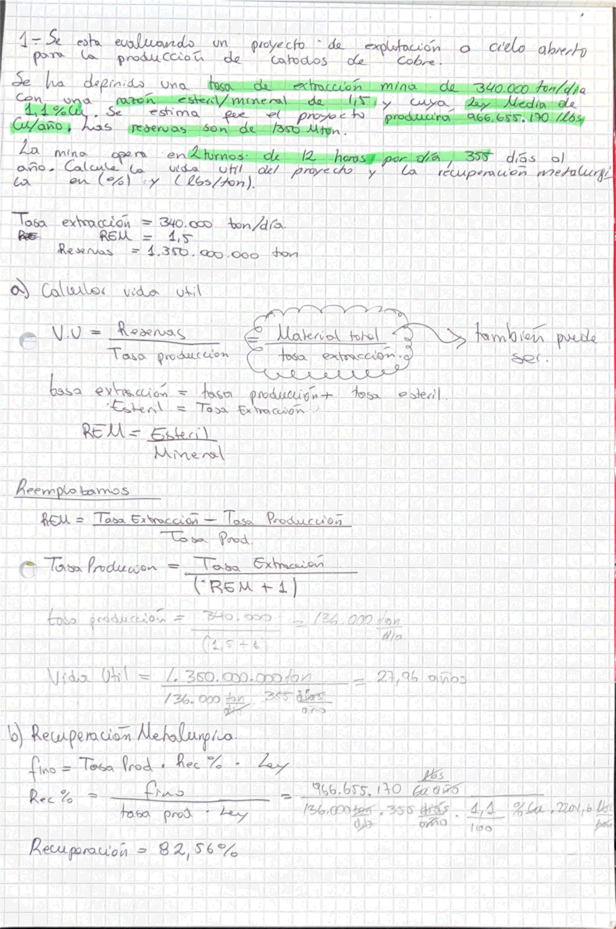 1- Se esta evaluando un proyecto de explotación a cielo abierto
para la producción de catodos de cobre.
Se ha definido una tasa de extracción mina de 340.000 ton/dia
con una razón esteril/mineral de 1,5 y cuya Ley Media de
1,1%Cu. Se estima que el proyecto producirá 966.655.170 Lbs
Cu/año. Las reservas son de 1350 Mton.
La mina opera en 2 turnos de 12 horas por día, 355 días al
año. Calcule la vida util del proyecto y la recuperación metalurgi
ca en (%) y (lbs/ton).
Tasa extracción = 340.000 ton/día
REM = 1,5
Reservas = 1.350.000.000 ton
a) Calcular vida util
V.U = Reservas / Tasa producción = Material total / tasa extracción → también puede
ser.
tasa extracción = tasa producción + tasa esteril.
Esteril = Tasa Extracción
REM = Esteril / Mineral
Reemplatamos
REM = Tasa Extracción - Tasa Producción / Tasa Prod.
Tasa Producion = Tasa Extracción / (REM + 1)
tasa producción = 340.000 / (1,5+1) = 136.000 ton/dia
Vida Util = 1.350.000.000 ton / 136.000 ton/dia 355 dias/año = 27,96 años
b) Recuperación Metalurgica.
fino = Tasa Prod · Rec % · Ley
Rec % = fino / tasa prod · Ley = 966.655.170 lbs Cu año / 136.000 ton/dia · 355 dias/año · 1,1/100 % Cu · 2204,6 lb/ton
Recuperación = 82,56%